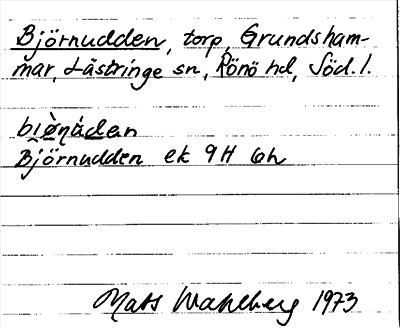 Björnudden, torp, Grundsham-
mar, Lästringe sn, Rönö hd, Söd. l.
Björnudden ek 9H 6h
Mats Wahlberg 1973